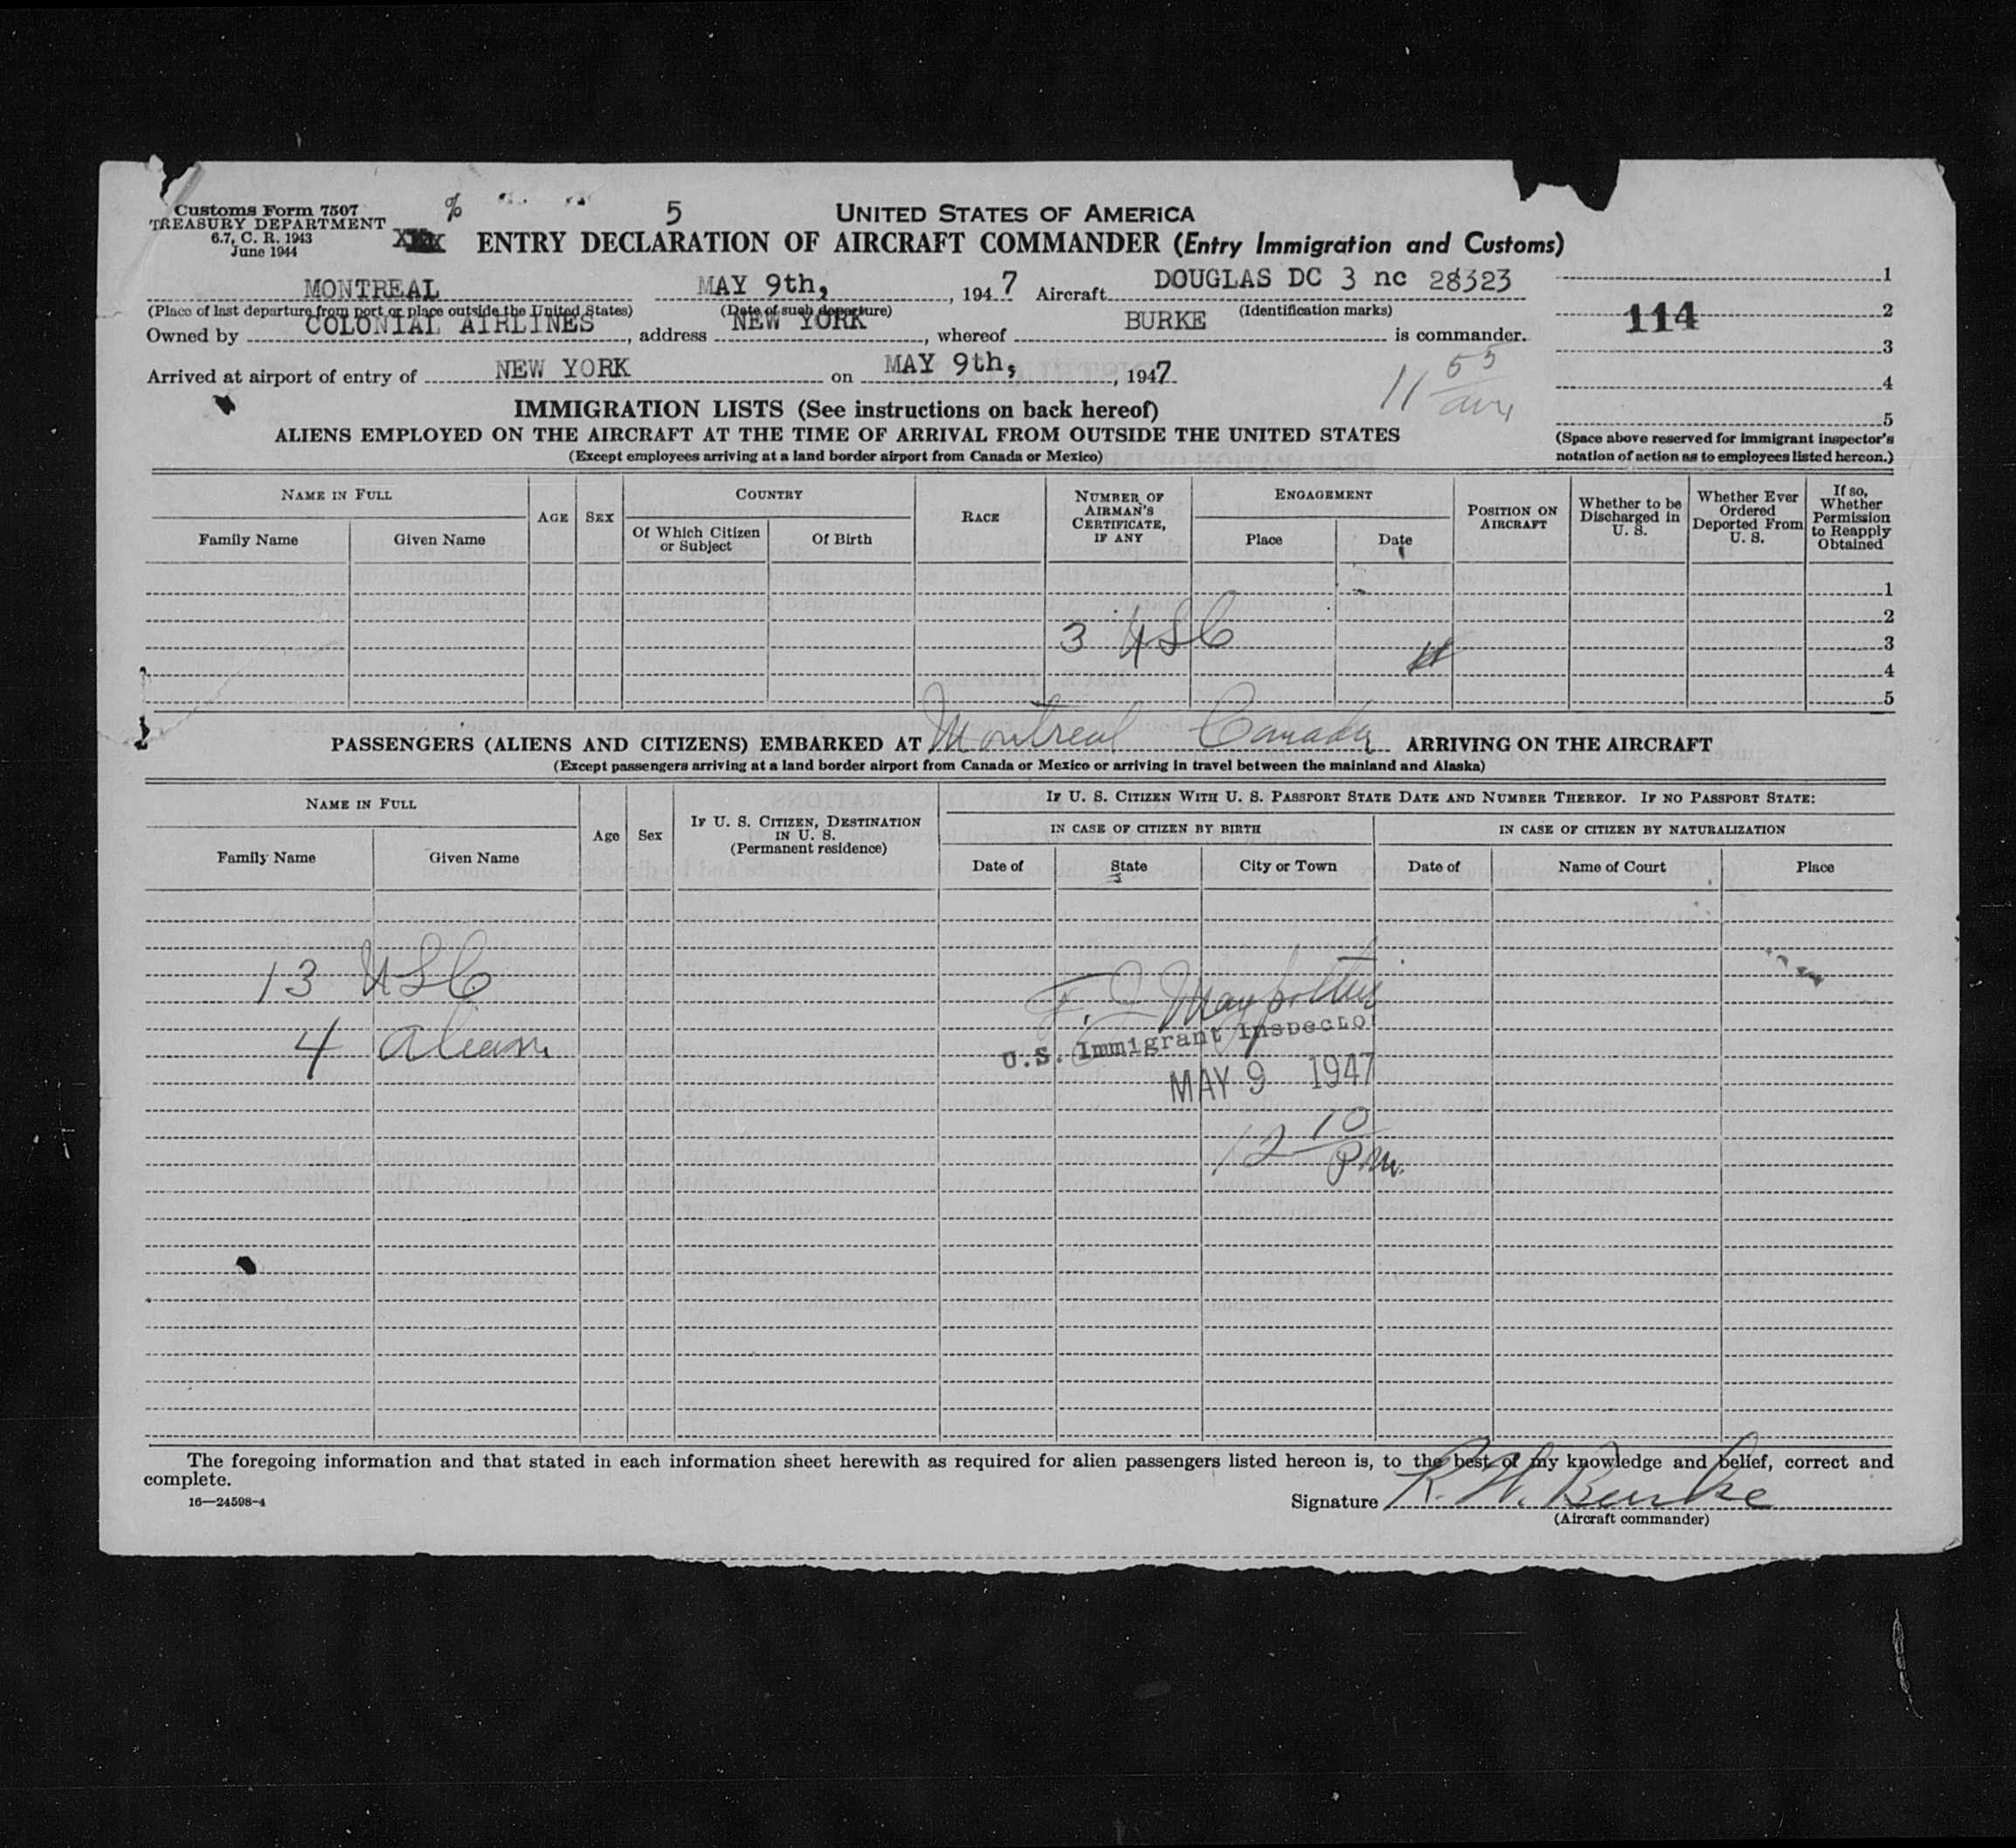 Customs Form 7507
TREASURY DEPARTMENT
6.7, C. R. 1943
June 1944
% 5
UNITED STATES OF AMERICA
ENTRY DECLARATION OF AIRCRAFT COMMANDER (Entry Immigration and Customs)
MONTREAL MAY 9th, , 1947 Aircraft DOUGLAS DC 3 nc 28323 1
(Place of last departure from port or place outside the United States) (Date of such departure) (Identification marks)
114 2
Owned by COLONIAL AIRLINES, address NEW YORK, whereof BURKE is commander.
3
Arrived at airport of entry of NEW YORK on MAY 9th, , 1947 11 55 am 4
IMMIGRATION LISTS (See instructions on back hereof) 5
ALIENS EMPLOYED ON THE AIRCRAFT AT THE TIME OF ARRIVAL FROM OUTSIDE THE UNITED STATES
(Except employees arriving at a land border airport from Canada or Mexico)
(Space above reserved for immigrant inspector's
notation of action as to employees listed hereon.)
NAME IN FULL
Family Name Given Name
AGE SEX
COUNTRY
Of Which Citizen or Subject Of Birth
RACE
NUMBER OF AIRMAN'S CERTIFICATE, IF ANY
ENGAGEMENT
Place Date
POSITION ON AIRCRAFT
Whether to be Discharged in U. S.
Whether Ever Ordered Deported From U. S.
If so, Whether Permission to Reapply Obtained
1
2
3 USC 3
4
5
PASSENGERS (ALIENS AND CITIZENS) EMBARKED AT Montreal Canada ARRIVING ON THE AIRCRAFT
(Except passengers arriving at a land border airport from Canada or Mexico or arriving in travel between the mainland and Alaska)
NAME IN FULL
Family Name Given Name
Age Sex
IF U. S. CITIZEN, DESTINATION IN U. S.
(Permanent residence)
IF U. S. CITIZEN WITH U. S. PASSPORT STATE DATE AND NUMBER THEREOF. IF NO PASSPORT STATE:
IN CASE OF CITIZEN BY BIRTH IN CASE OF CITIZEN BY NATURALIZATION
Date of State City or Town Date of Name of Court Place
13 USC
4 aliens
U.S. Immigrant Inspector
MAY 9 1947
12 10 Pm.
The foregoing information and that stated in each information sheet herewith as required for alien passengers listed hereon is, to the best of my knowledge and belief, correct and
complete.
16—24598-4
Signature R. W. Burke
(Aircraft commander)